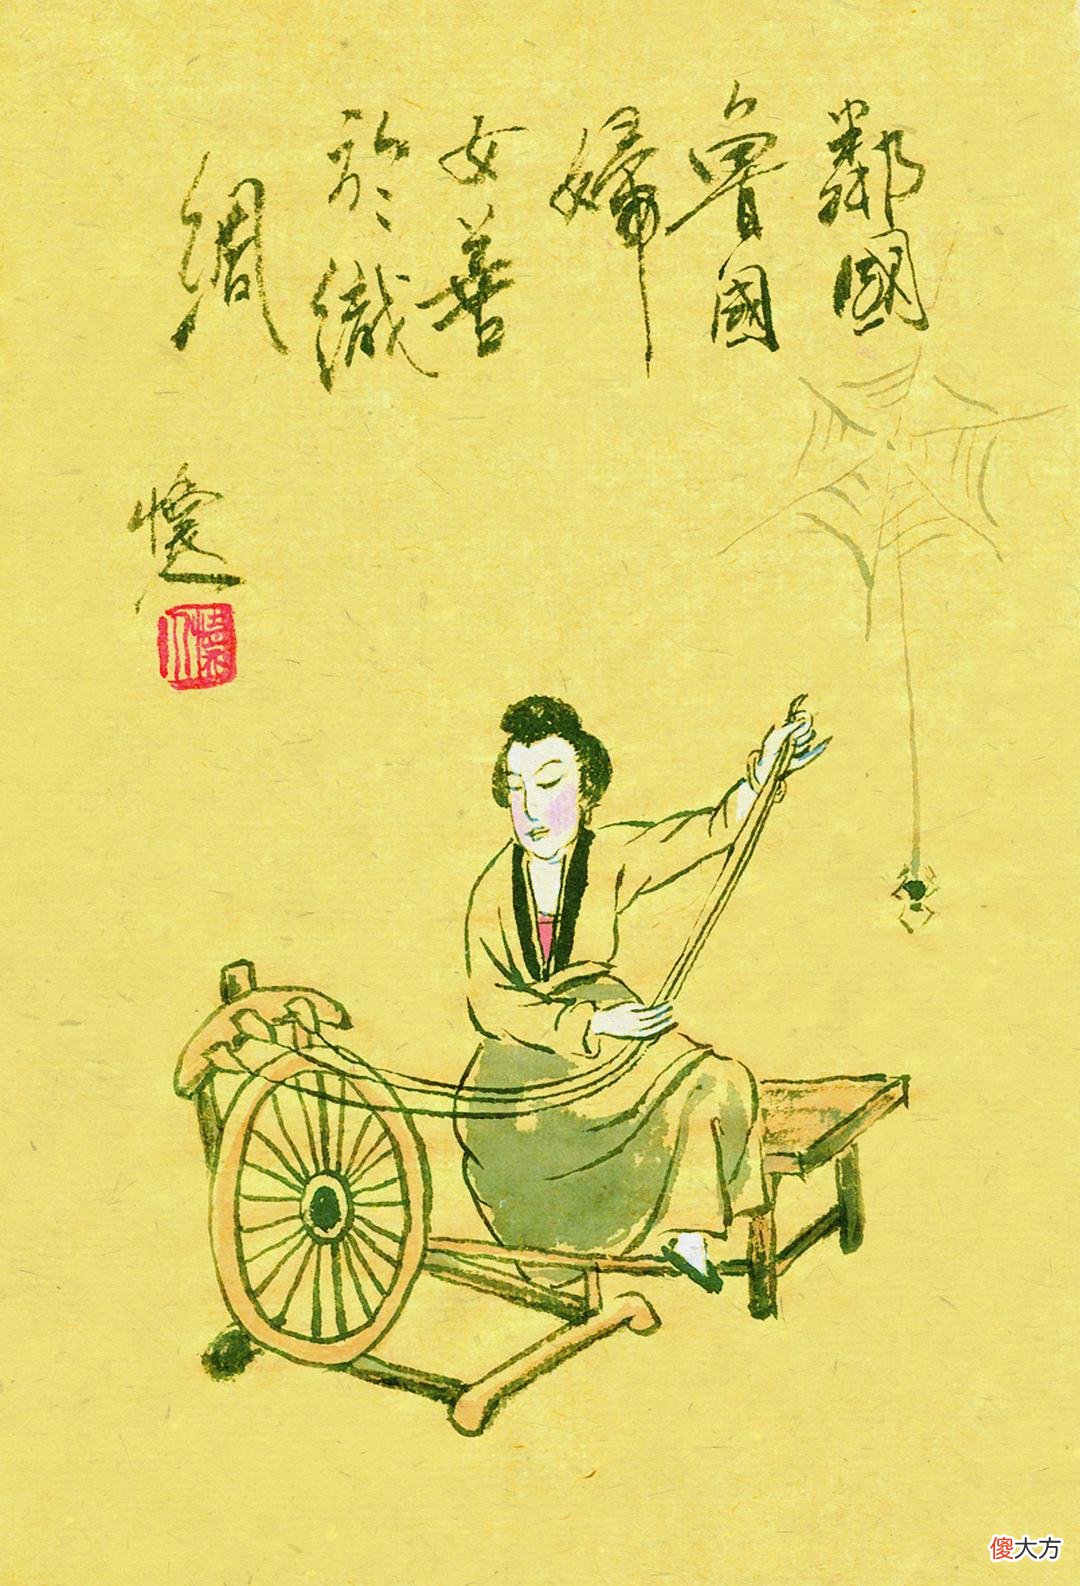 鄰國
魯國
婦
女善
於織
綢
傻大方